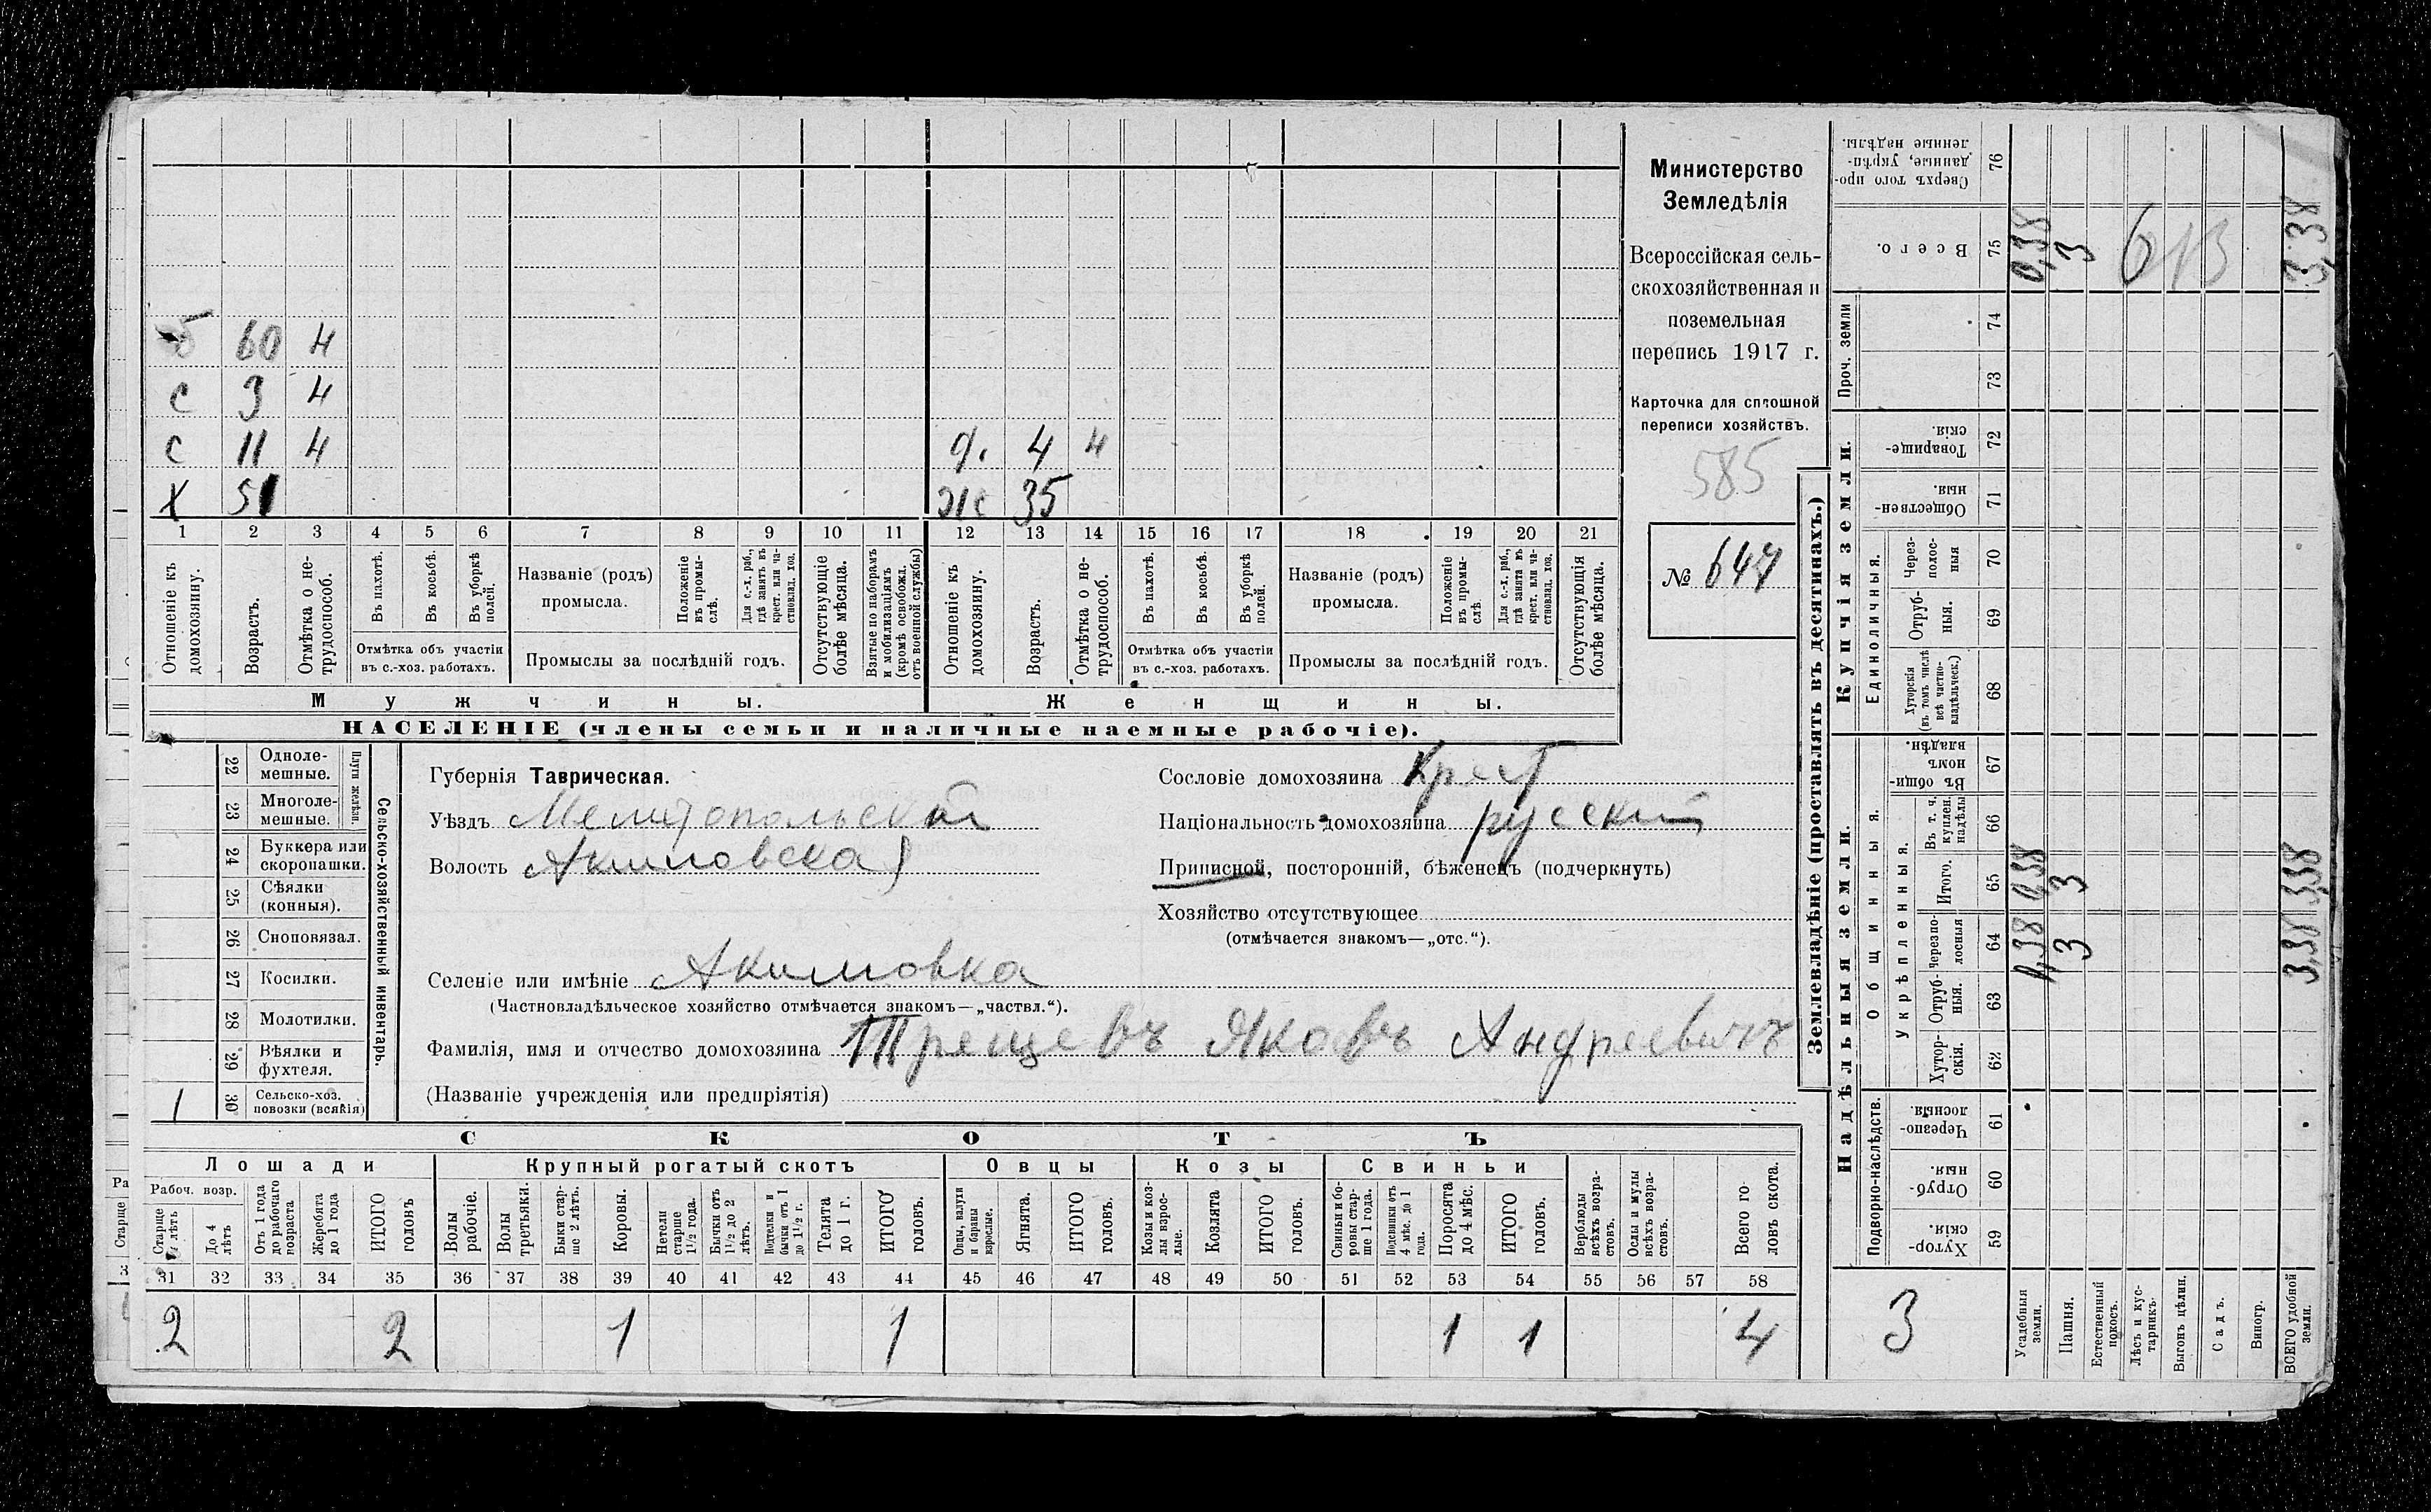 Министерство
Земледѣлія
Всероссійская сель-
скохозяйственная и
поземельная
перепись 1917 г.
Карточка для сплошной
переписи хозяйствъ.
585
№ 647
Б 60 4
С 3 4
С 11 4
Х 51
д. 4 4
Же 35
1 2 3 4 5 6 7 8 9 10 11 12 13 14 15 16 17 18 19 20 21
Отношеніе къ домохозяину.
Возрастъ.
Отмѣтка о не-трудоспособ.
Въ пахотѣ.
Въ косьбѣ.
Въ уборкѣ полей.
Отмѣтка объ участіи
въ с.-хоз. работахъ.
Названіе (родъ)
промысла.
Положеніе въ промы-слѣ.
Для с.-х. раб., гдѣ занятъ въ крест. или ча-стновлад. хоз.
Промыслы за послѣдній годъ.
Отсутствующіе болѣе мѣсяца.
Взятые по наборамъ и мобилизаціямъ (кромѣ освобожд. отъ военной службы)
Отношеніе къ домохозяину.
Возрастъ.
Отмѣтка о не-трудоспособ.
Въ пахотѣ.
Въ косьбѣ.
Въ уборкѣ полей.
Отмѣтка объ участіи
въ с.-хоз. работахъ.
Названіе (родъ)
промысла.
Положеніе въ промы-слѣ.
Для с.-х. раб., гдѣ занята въ крест. или ча-стновлад. хоз.
Промыслы за послѣдній годъ.
Отсутствующія болѣе мѣсяца.
Мужчины. Женщины.
НАСЕЛЕНІЕ (члены семьи и наличные наемные рабочіе).
22 Одноле-мешные.
23 Многоле-мешные.
Плуги желѣзн.
24 Буккера или скоропашки.
25 Сѣялки (конныя).
26 Сноповязал.
27 Косилки.
28 Молотилки.
29 Вѣялки и фухтеля.
1 30 Сельско-хоз. повозки (всякія)
Сельско-хозяйственный инвентарь.
Губернія Таврическая.
Уѣздъ Мелитопольский
Волость Акимовская
Селеніе или имѣніе Акимовка
(Частновладѣльческое хозяйство отмѣчается знакомъ—„частвл.“).
Фамилія, имя и отчество домохозяина Трещевъ Яковъ Андреевичъ
(Названіе учрежденія или предпріятія)
Сословіе домохозяина Крест
Національность домохозяина русский
Приписной, посторонній, бѣженецъ (подчеркнуть)
Хозяйство отсутствующее
(отмѣчается знакомъ—„отс.“).
СКОТЪ
Лошади Крупный рогатый скотъ Овцы Козы Свиньи
Рабоч. возр.
Старше 4 лѣтъ
До 4 лѣтъ
Отъ 1 года до рабочаго возраста
Жеребята до 1 года
ИТОГО головъ
Волы рабочіе.
Волы третьяки.
Быки стар-ше 2 лѣтъ.
Коровы.
Нетели старше 1½ года.
Бычки отъ 1½ до 2 лѣтъ.
Подтелки и бычки отъ 1 до 1½ г.
Телята до 1 г.
ИТОГО головъ.
Овцы, валухи и бараны взрослые.
Ягнята.
ИТОГО головъ.
Козы и коз-лы взрос-лые.
Козлята
ИТОГО головъ.
Свиньи и бо-ровы стар-ше 1 года.
Подсвинки отъ 4 мѣс. до 1 года.
Поросята до 4 мѣс.
ИТОГО головъ.
Верблюды всѣхъ возра-стовъ.
Ослы и мулы всѣхъ возра-стовъ.
Всего го-ловъ скота.
31 32 33 34 35 36 37 38 39 40 41 42 43 44 45 46 47 48 49 50 51 52 53 54 55 56 57 58
2 2 1 1 1 1 4
Землевладѣніе (проставлять въ десятинахъ.)
Надѣльныя земли. Купчія земли. Проч. земли
Подворно-наслѣдств.
Общинныя.
Укрѣпленныя.
Единоличныя.
Хутор-скія. 59
Отруб-ныя. 60
Черезпо-лосныя. 61
Хутор-скія. 62
Отруб-ныя. 63
Черезпо-лосныя 64
Итого. 65
Въ т. ч. куплен. надѣлы 66
Въ общи-номъ владѣн. 67
Хуторскія (въ томъ числѣ всѣ частно-владѣльческ.) 68
Отруб-ныя. 69
Через-полос-ныя 70
Обществен-ныя. 71
Товарище-скія. 72
73
74
Всего. 75
Сверхъ того про-данные, укрѣп-ленные надѣлы. 76
3
Усадебныя земли. 0,38 0,38 0,38
Пашня. 3 3 3
Естественный покосъ.
Лѣсъ и кус-тарникъ.
Выгонъ цѣлин.
Садъ.
Виногр.
ВСЕГО удобной земли. 3,38 3,38 3,38